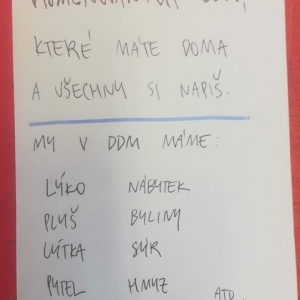 KTERÉ MÁTE DOMA
A VŠECHNY SI NAPIŠ.
MY V DDM MÁME:
LÝKO NÁBYTEK
PLYŠ BYLINY
LÝTKA SÝR
PYTEL HMYZ ATD.